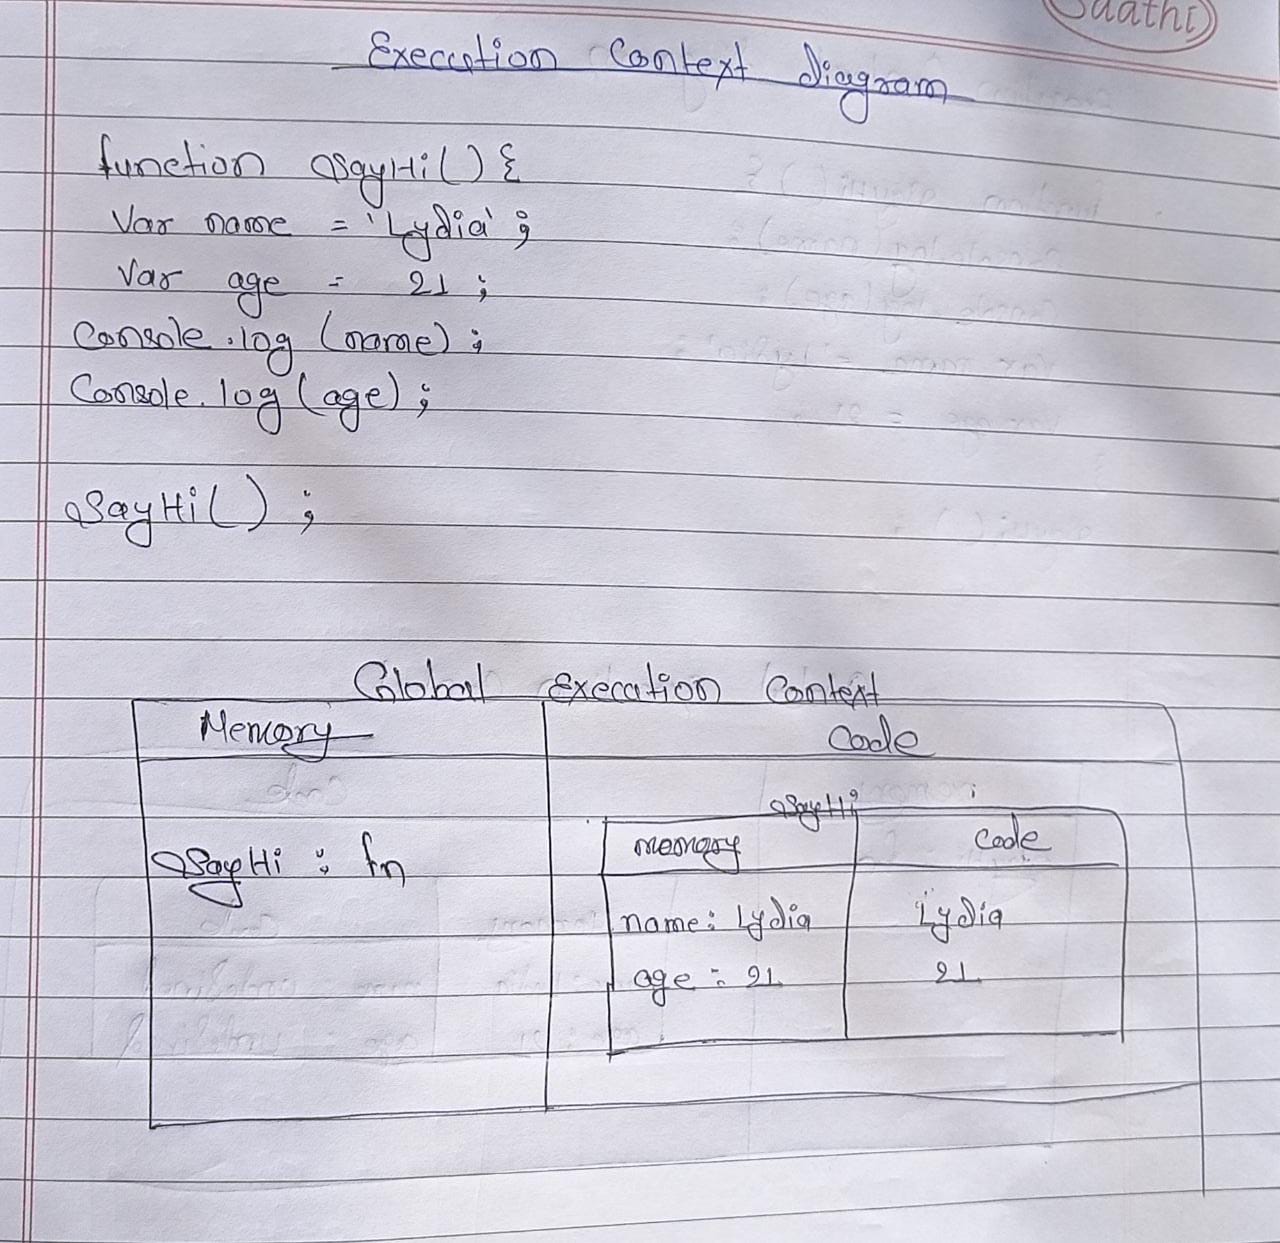 Saathi
Execution Context diagram
function sayHi() {
Var name = 'Lydia';
Var age = 21;
Console.log (name);
Console.log (age);
sayHi();
Global Execation Context
Memory Code
sayHi
memory Code
sayHi : fn
name: Lydia Lydia
age : 21 21